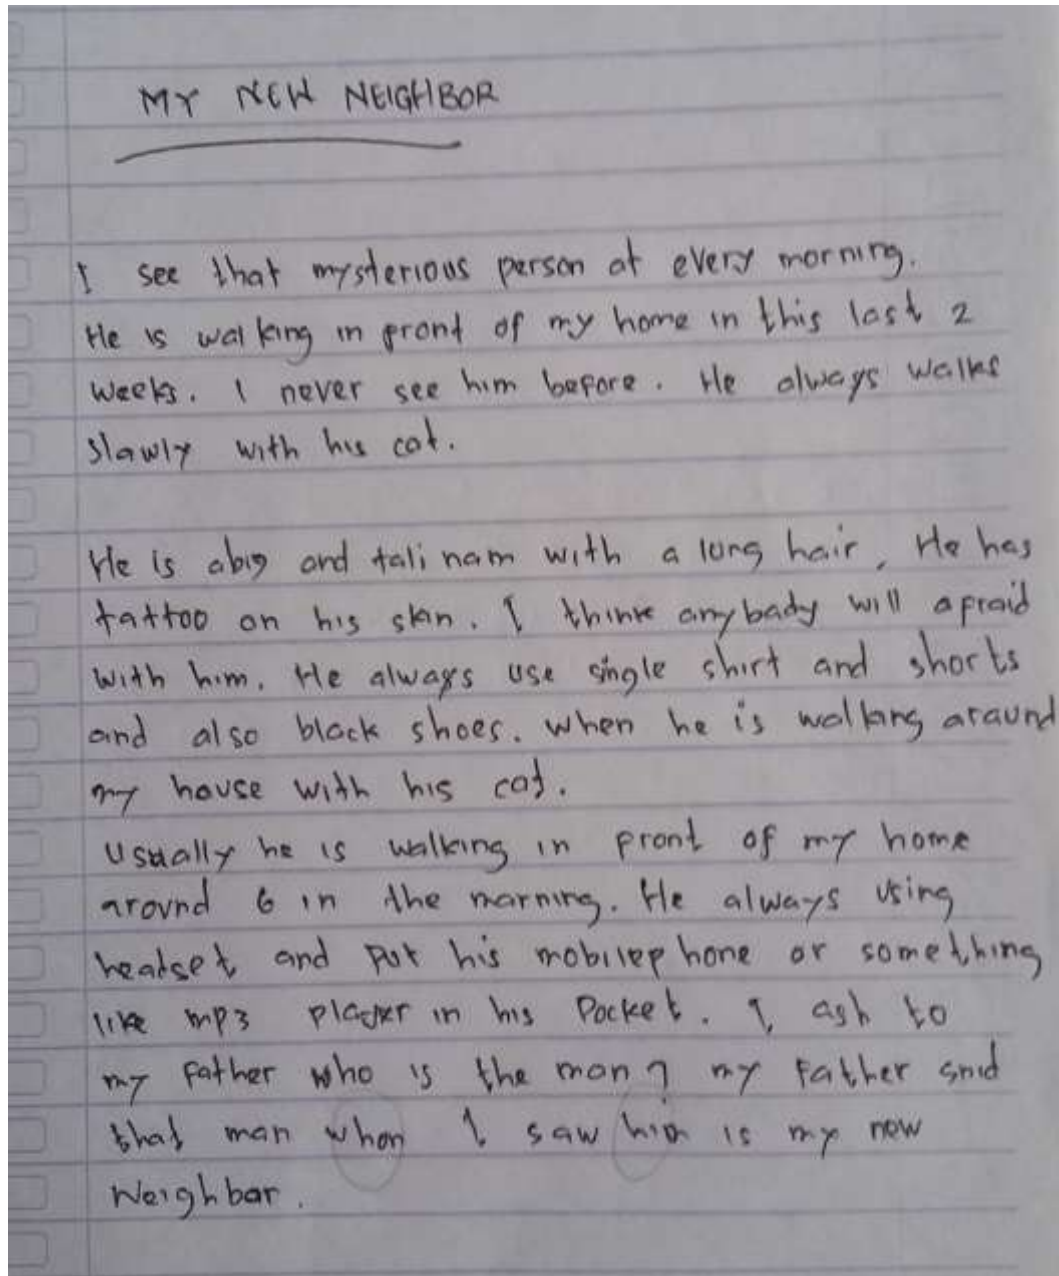 MY NEW NEIGHBOR
I see that mysterious person at every morning.
He is walking in pront of my home in this last 2
weeks. I never see him bepore. He always walks
slawly with his cat.
He is abig and tall nam with a long hair, He has
tattoo on his skin. I think anybady will apraid
with him. He always use single shirt and shorts
and also black shoes. when he is walking araund
my house with his cat.
Usually he is walking in pront of my home
around 6 in the marning. He always using
headset and put his mobilephone or something
like mp3 player in his Pocket. I ask to
my father who is the man? my father said
that man whom I saw him is my new
Neighbar.